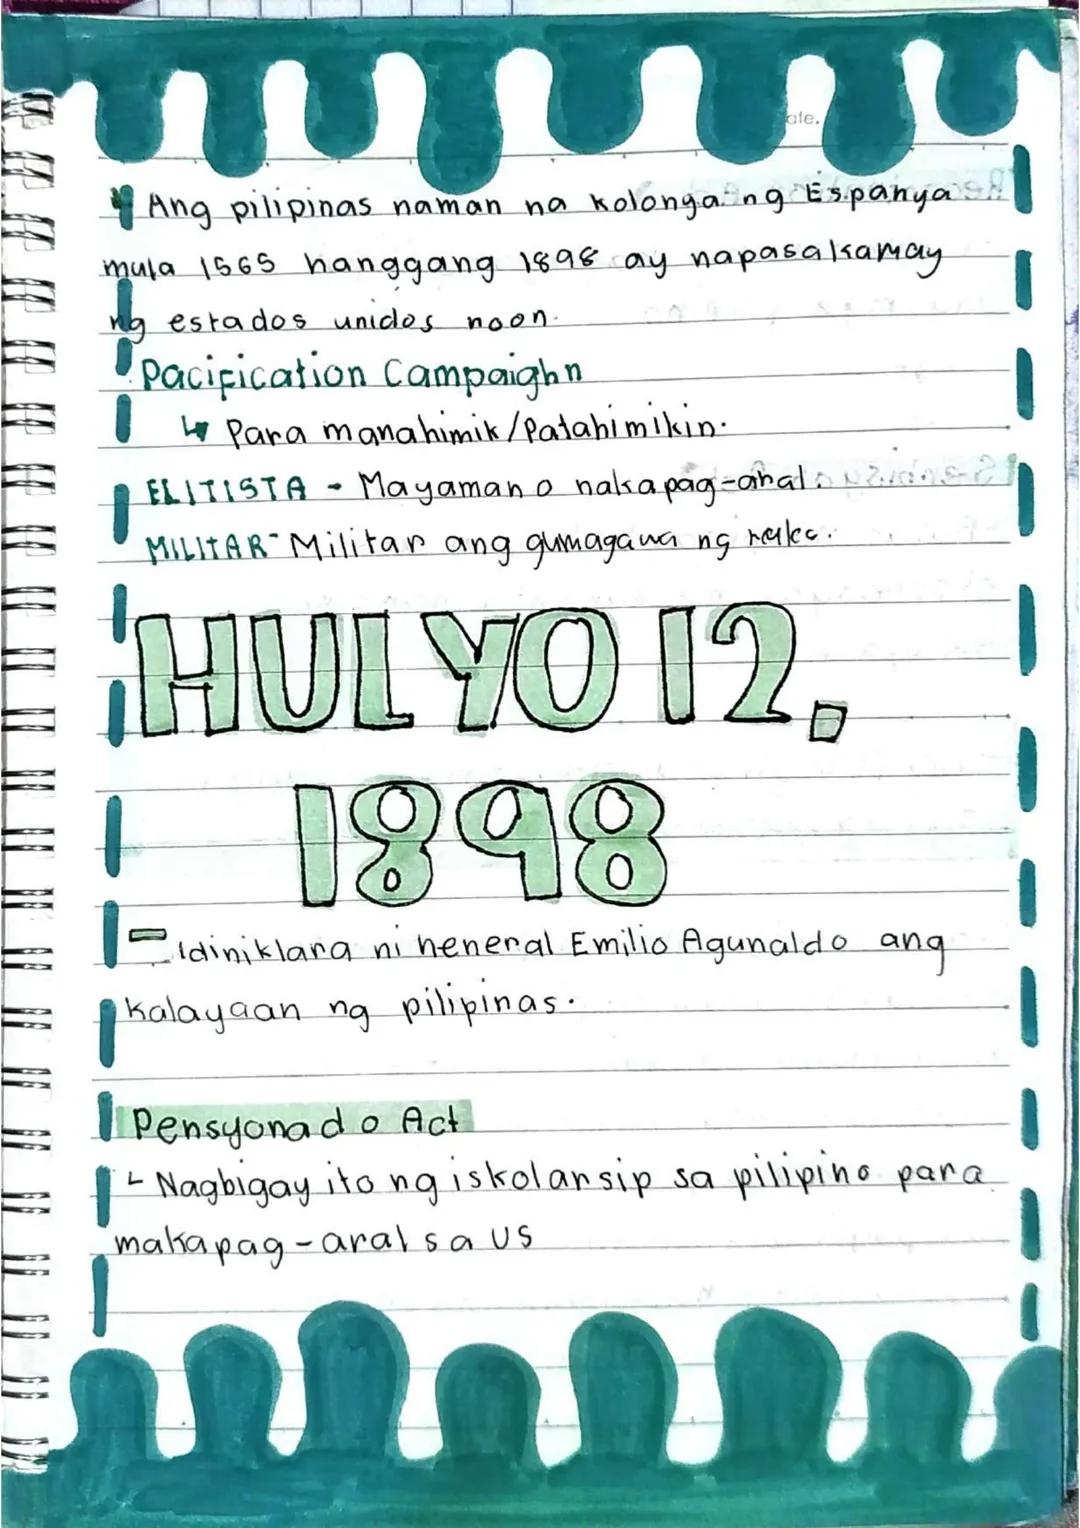 ate.
Ang pilipinas naman na kolonga ng Espanya
mula 1565 hanggang 1898 ay napasakamay
ng estados unidos noon.
Pacipication Campaighn
↳ Para manahimik/Patahimikin.
ELITISTA - Mayaman o nakapag-aral.
MILITAR - Militar ang gumagawa ng
HULYO 12,
1898
- Idiniklara ni heneral Emilio Agunaldo ang
kalayaan ng pilipinas.
Pensyonado Act
↳ Nagbigay ito ng iskolarsip sa pilipino para
makapag-aral sa US